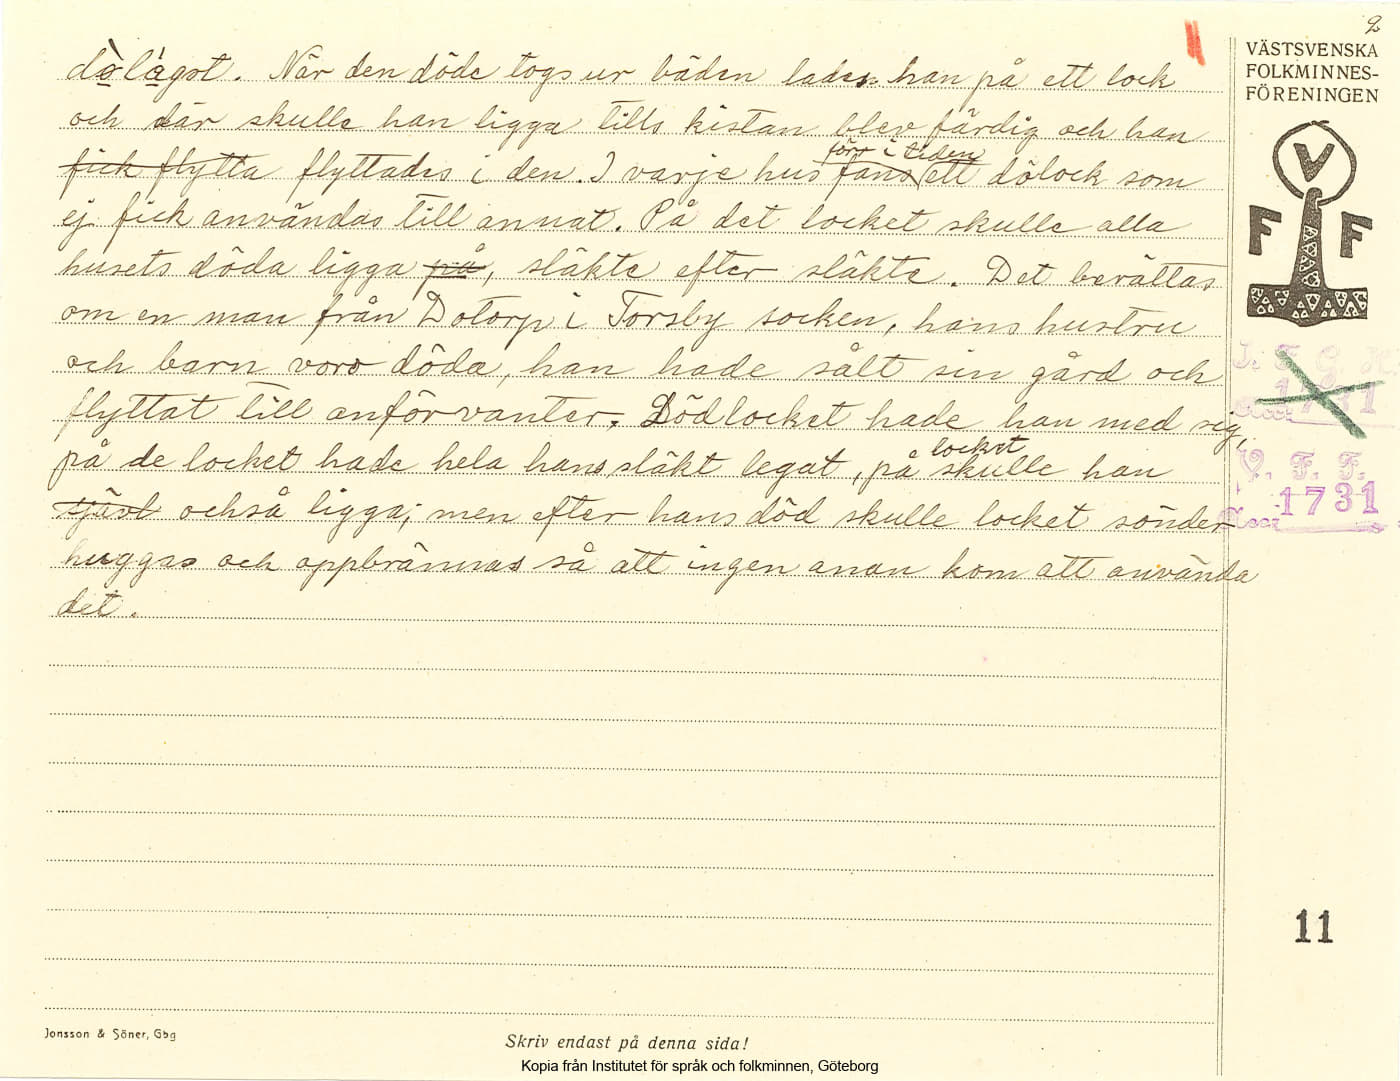 2
VÄSTSVENSKA
FOLKMINNES-
FÖRENINGEN
dòlágst. När den döde togs ur bäden lades han på ett lock
och där skulle han ligga tills kistan blev färdig och han
fick flytta flyttades i den. I varje hus fans förr i tiden ett dölock som
ej fick användas till annat. På det locket skulle alla
husets döda ligga på, släkte efter släkte. Det berättas
om en man från Dotorp i Torsby socken, hans hustru
och barn voro döda, han hade sålt sin gård och
flyttat till anförvanter. Dödlocket hade han med sig,
på de locket hade hela hans släkt legat, på locket skulle han
själv också ligga; men efter hans död skulle locket sönder
huggas och oppbrännas så att ingen anan kom att använda
det.
V
F F
I. F. G. H.
Acc. 1731
V. F. F.
Acc. 1731
11
Jonsson & Söner, Gbg
Skriv endast på denna sida!
Kopia från Institutet för språk och folkminnen, Göteborg